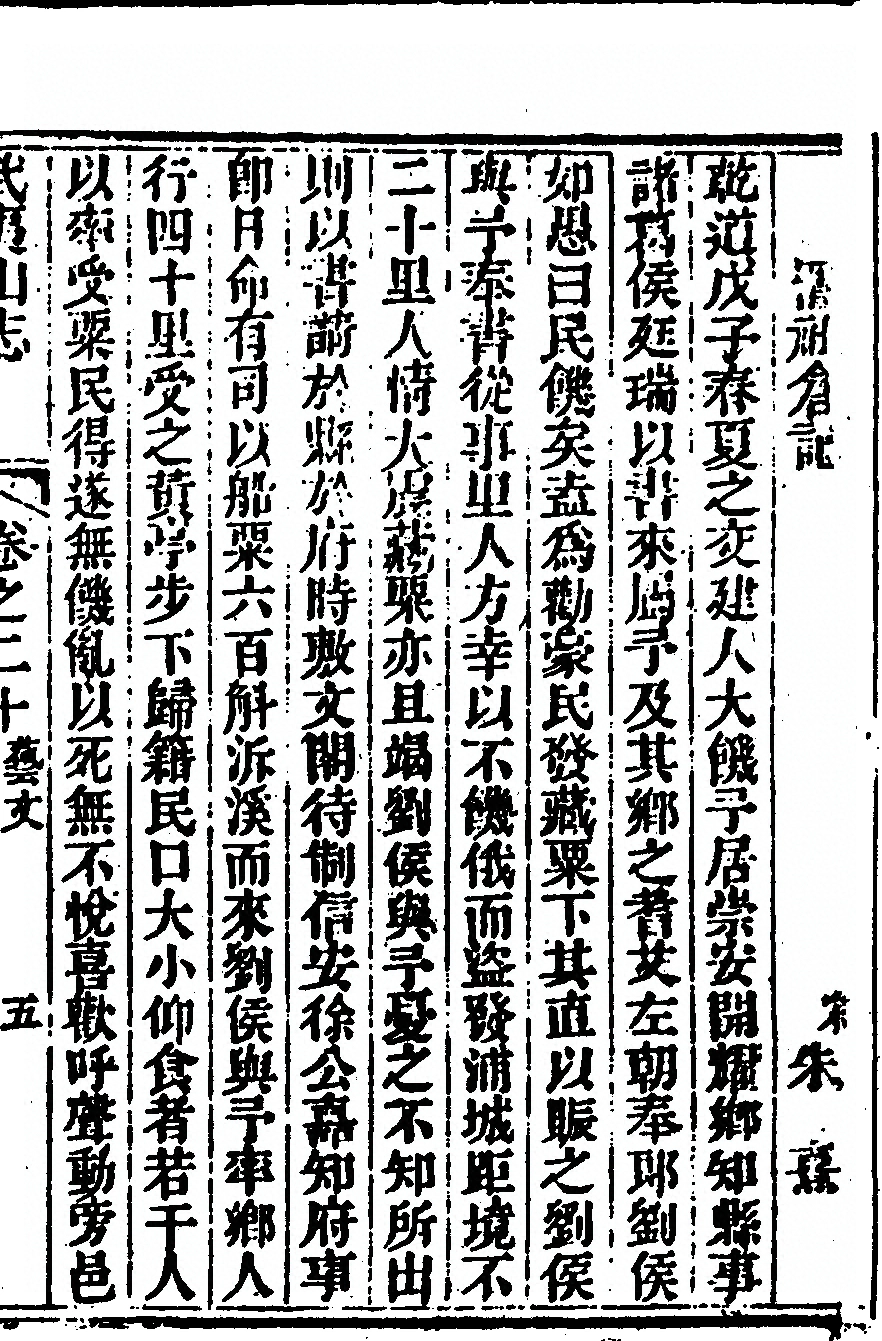 社倉記　宋　朱熹
乾道戊子春夏之交建人大饑予居崇安開耀鄉知縣事
諸葛侯廷瑞以書來屬予及其鄉之耆艾左朝奉郎劉侯
如愚曰民饑矣盍爲勸豪民發藏粟下其直以賑之劉侯
與予奉書從事里人方幸以不饑俄而盜發浦城距境不
二十里人情大震藏粟亦且竭劉侯與予憂之不知所出
則以書請於縣於府時敷文閣待制信安徐公嘉知府事
卽日命有司以船粟六百斛泝溪而來劉侯與予率鄉人
行四十里受之黃亭步下歸籍民口大小仰食者若干人
以率受粟民得遂無饑亂以死無不悅喜歡呼聲動旁邑
武夷山志　卷之二十　藝文　五